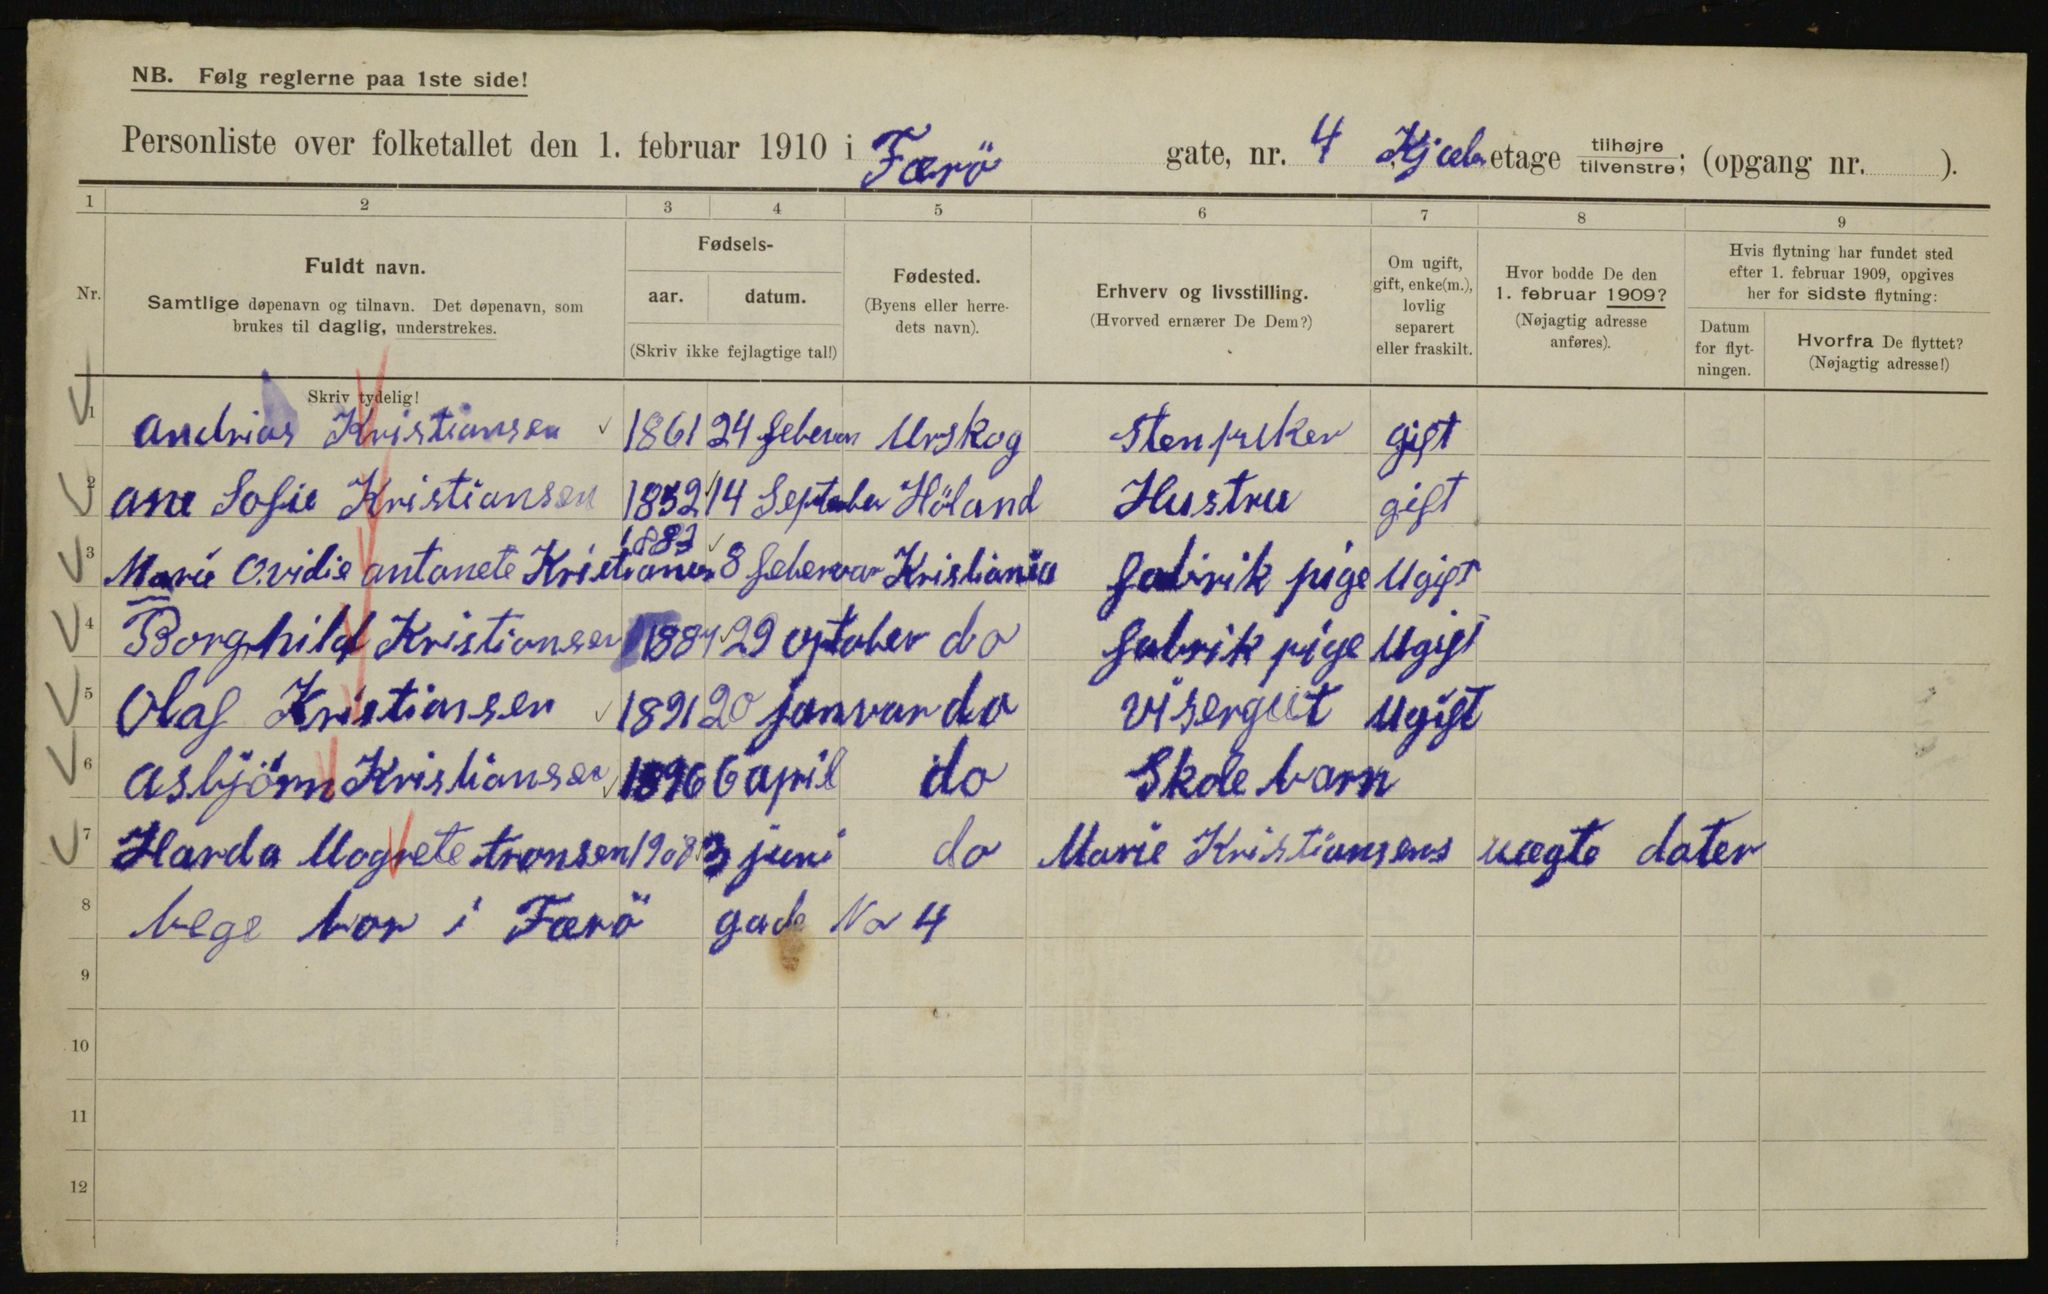 NB. Følg reglerne paa 1ste side!
Personliste over folketallet den 1. februar 1910 i Færö gate, nr. 4 Kjeletage tilhøjre tilvenstre; (opgang nr. ).
1 2 3 4 5 6 7 8 9
Nr.
Fuldt navn.
Samtlige døpenavn og tilnavn. Det døpenavn, som
brukes til daglig, understrekes.
Skriv tydelig!
Fødsels-
aar. datum.
(Skriv ikke fejlagtige tal!)
Fødested.
(Byens eller herre-
dets navn).
Erhverv og livsstilling.
(Hvorved ernærer De Dem?)
Om ugift,
gift, enke(m.),
lovlig
separert
eller fraskilt.
Hvor bodde De den
1. februar 1909?
(Nøjagtig adresse
anføres).
Hvis flytning har fundet sted
efter 1. februar 1909, opgives
her for sidste flytning:
Datum
for flyt-
ningen.
Hvorfra De flyttet?
(Nøjagtig adresse!)
1 Andrias Kristiansen 1861 24 Urskog gift
2 Ane Sofie Kristiansen 14 September Höland Hustru gift
3 Marie Ovidie antonete 8 Kristiania fabrik pige Ugift
4 Borghild Kristiansen 29 optober do fabrik pige Ugift
5 Olaf Kristiansen 1891 20 januar do visergut Ugift
6 Asbjörn Kristiansen 1896 6 april do Skole barn
7 Harda Magrete tronsen 1908 3 juni do Marie Kristiansens uægte dater
8 bor i Færö gade No 4
9
10
11
12